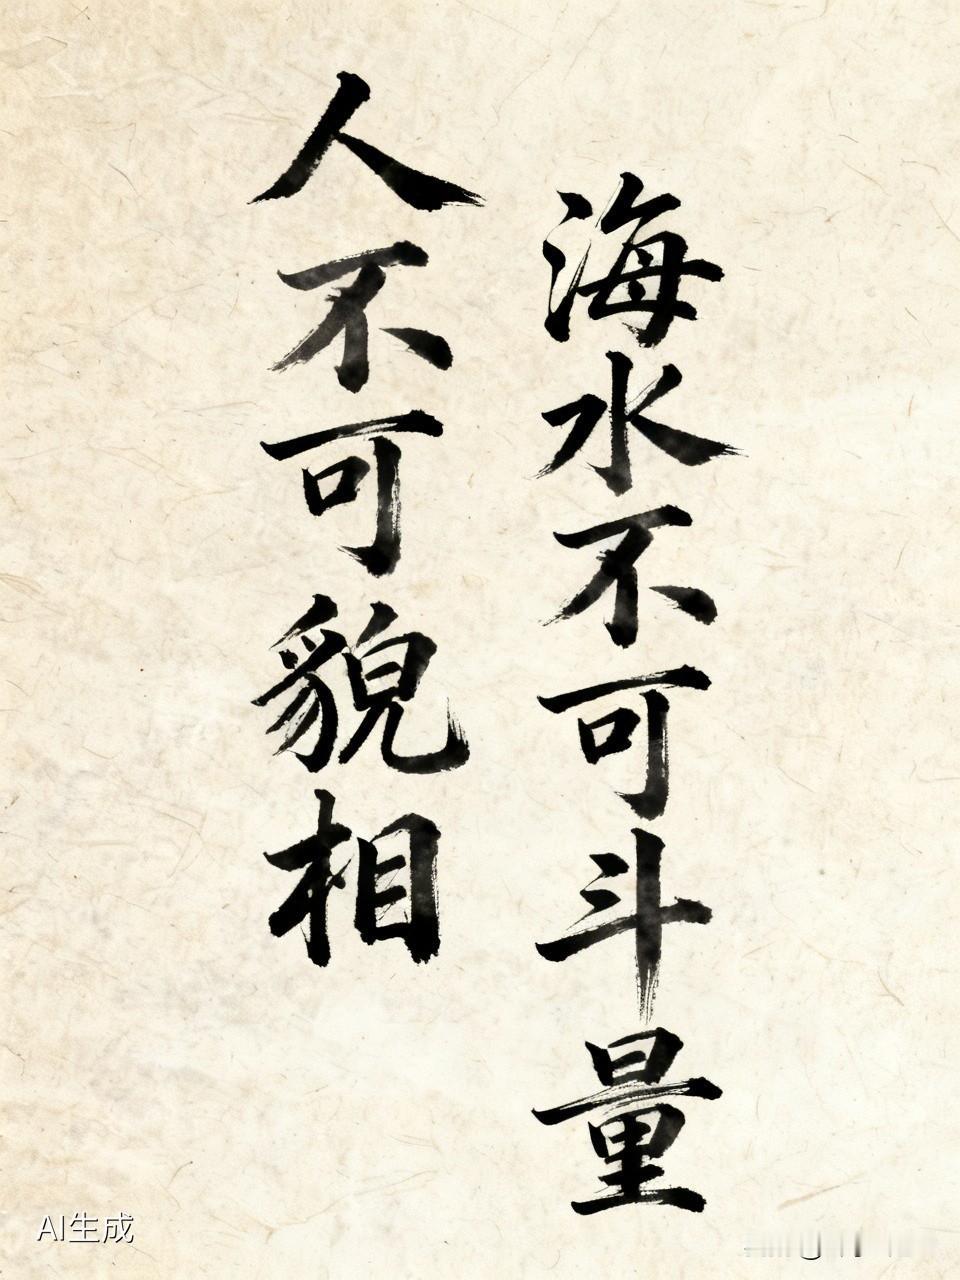 人不可貌相
海水不可斗量
AI生成